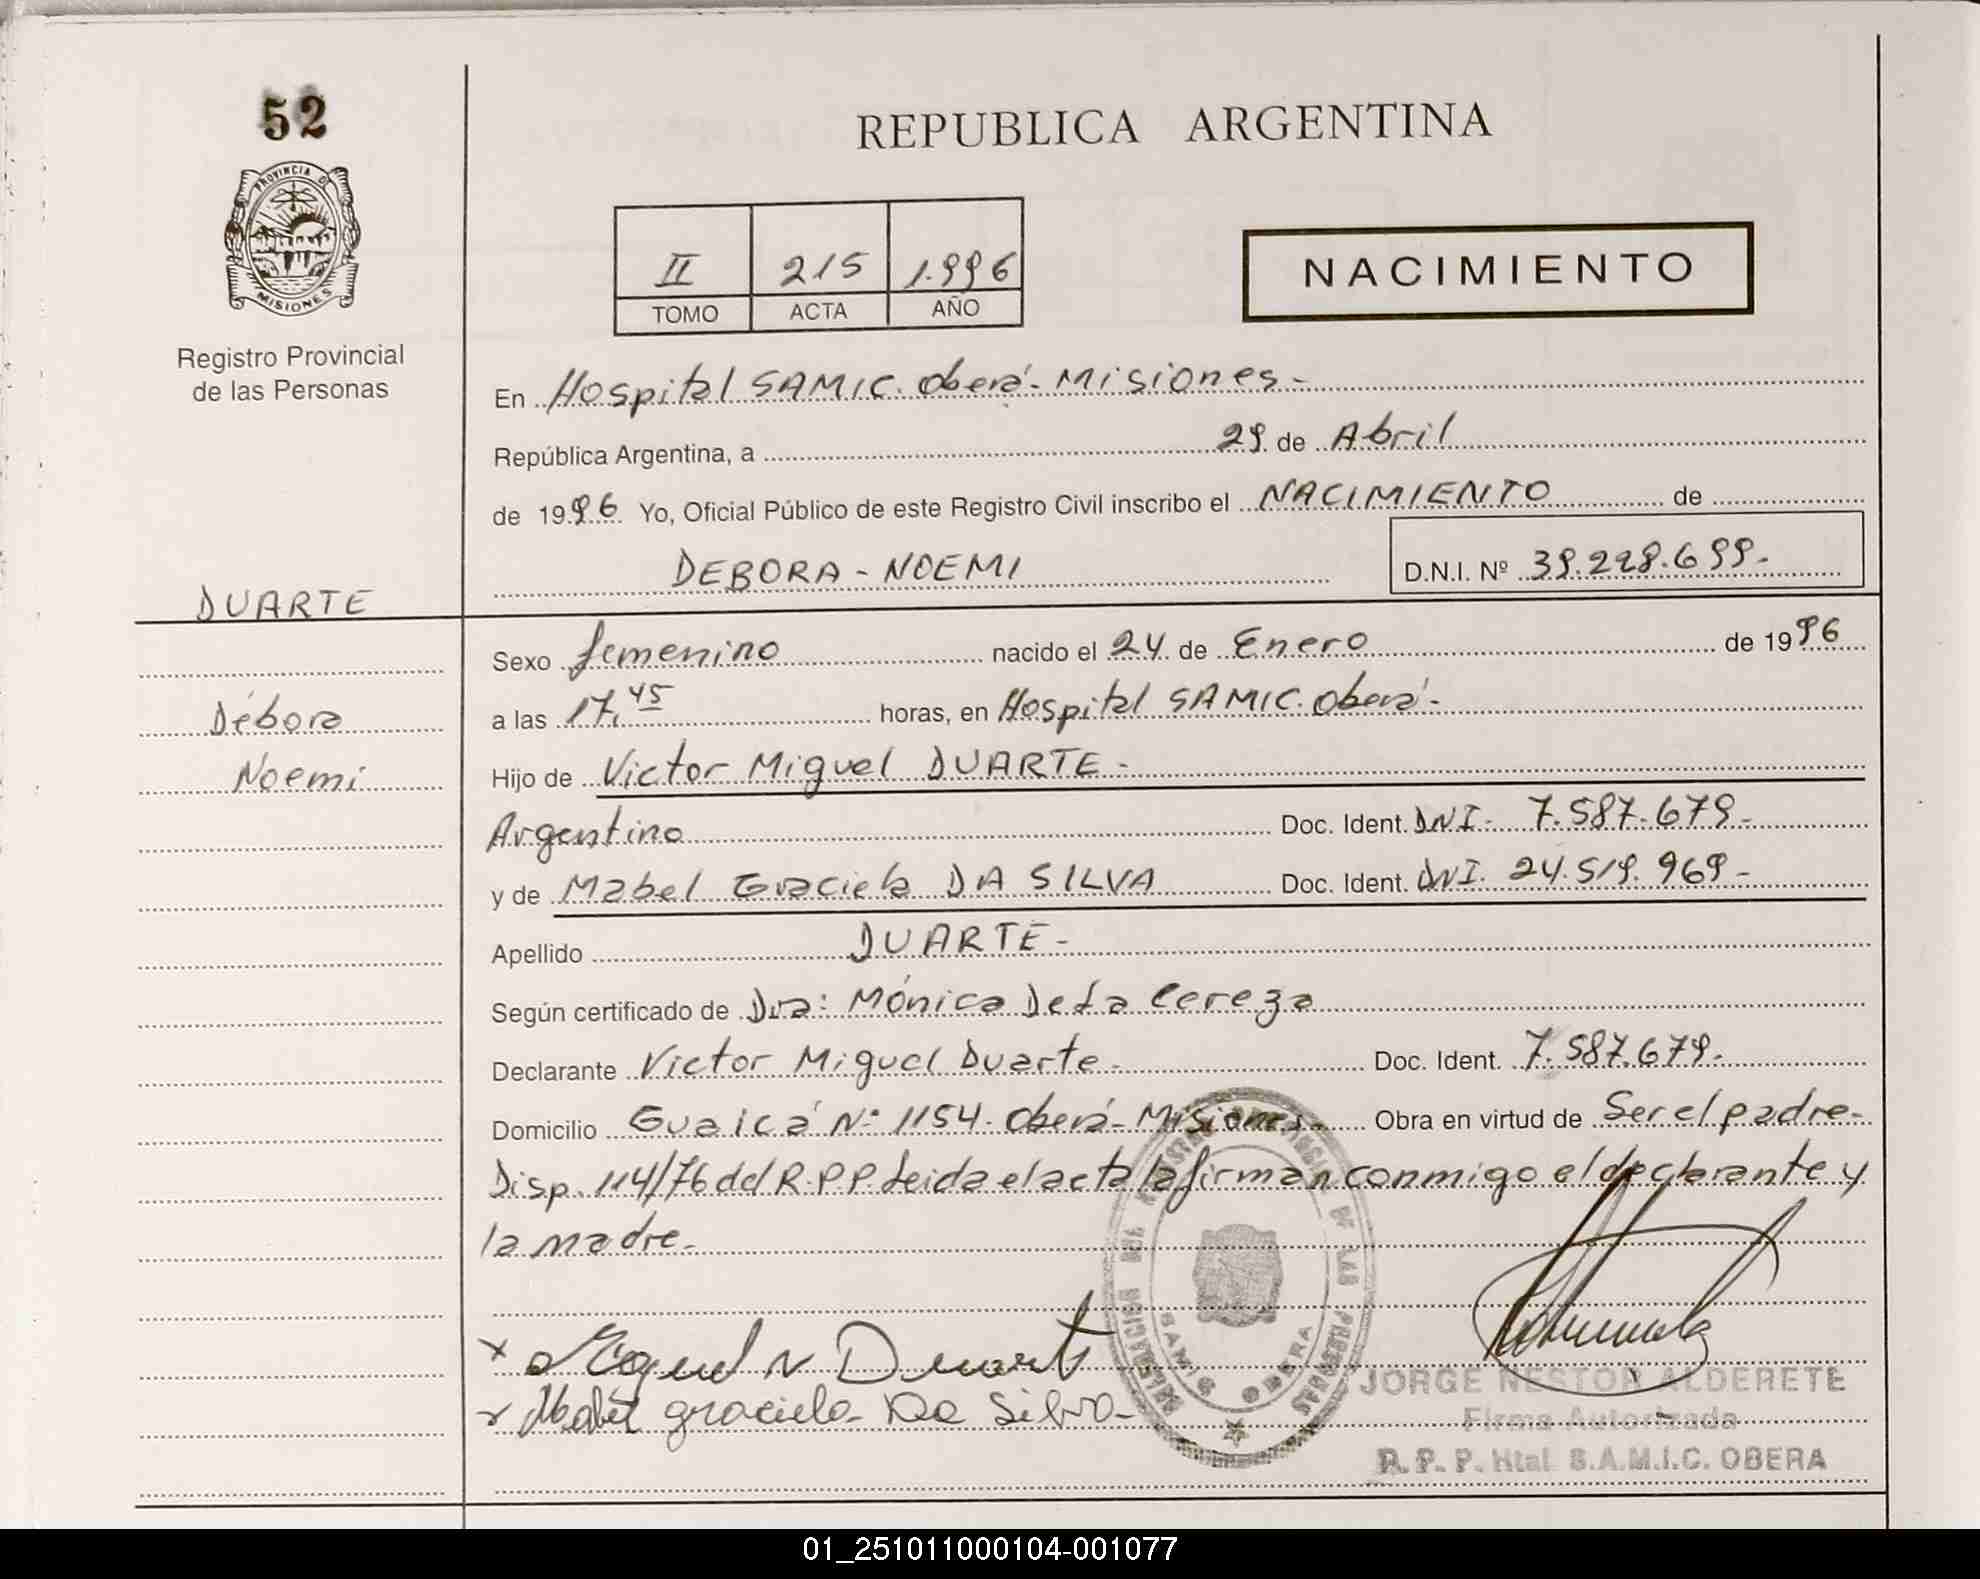 52
PROVINCIA DE
MISIONES
Registro Provincial
de las Personas
REPUBLICA ARGENTINA
II 215 1.996
TOMO ACTA AÑO
NACIMIENTO
En Hospital SAMIC. Oberá - Misiones -
República Argentina, a 29 de Abril
de 1996 Yo, Oficial Público de este Registro Civil inscribo el NACIMIENTO de
DEBORA - NOEMI D.N.I. Nº 39.228.699.-
DUARTE
Débora
Noemi
Sexo femenino nacido el 24 de Enero de 1996
a las 17,45 horas, en Hospital SAMIC. Oberá -
Hijo de Victor Miguel DUARTE -
Argentino Doc. Ident. DNI. 7.587.679 -
y de Mabel Graciela DA SILVA Doc. Ident. DNI. 24.519.969 -
Apellido DUARTE -
Según certificado de Dra: Mónica De La Cereza
Declarante Victor Miguel Duarte - Doc. Ident. 7.587.679.-
Domicilio Guaicá Nº 1154 - Oberá - Misiones - Obra en virtud de Ser el padre -
Disp. 114/76 del R.P.P. Leida el acta la firman conmigo el declarante y
la madre -
x Miguel V Duarte
x Mabel graciela Da Silva -
SAMIC OBERA
JORGE NESTOR ALDERETE
Firma Autorizada
R. P. P. Htal S.A.M.I.C. OBERA
01_251011000104-001077